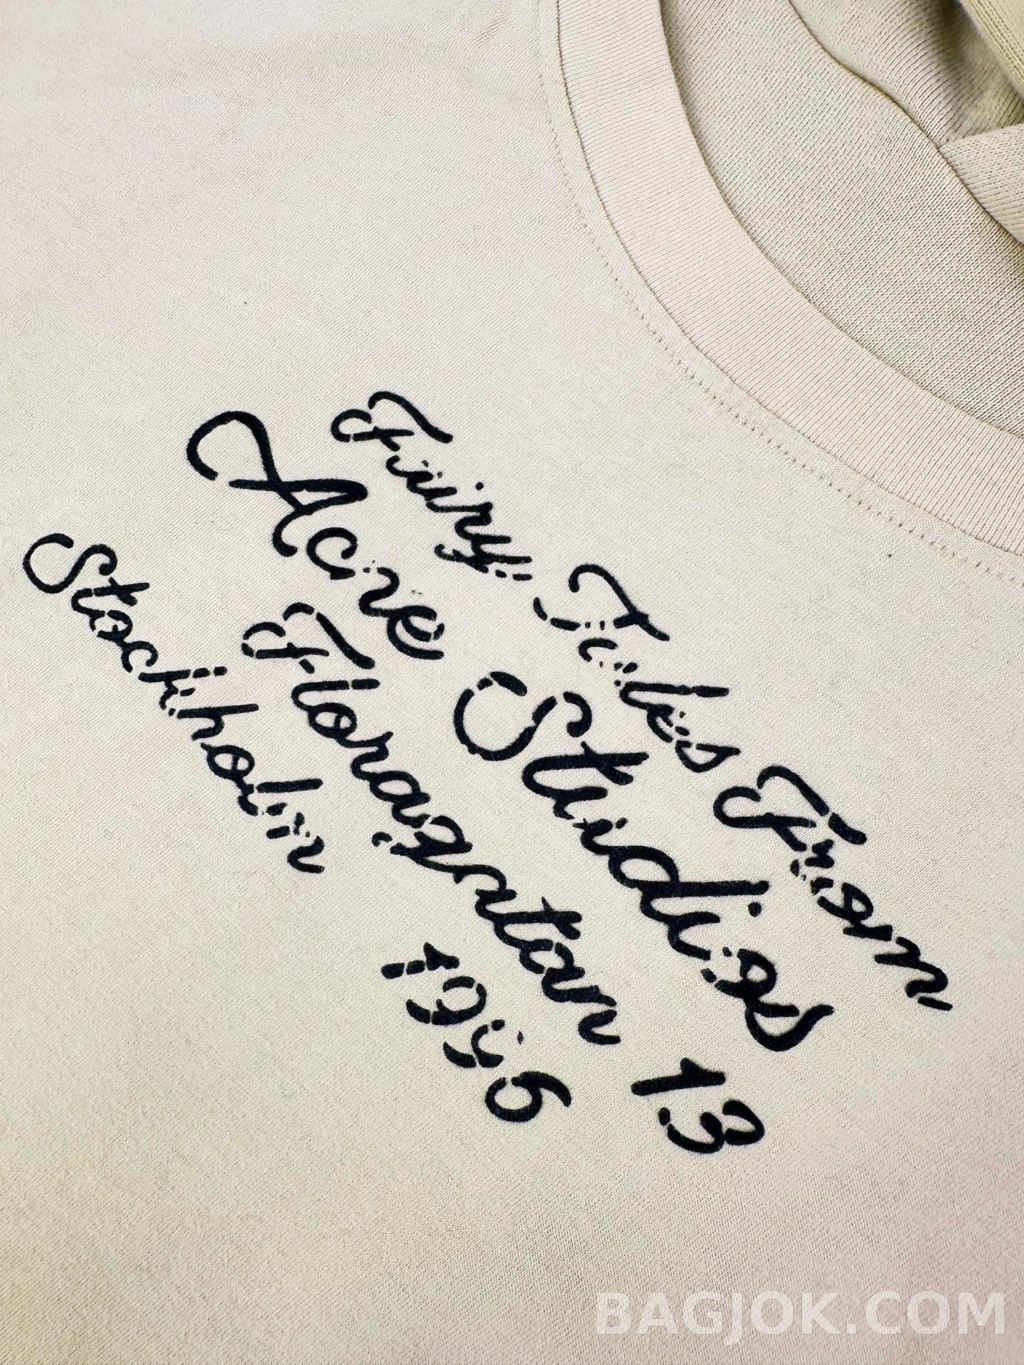 Fairy Tales From
Acne Studios
Floragatan 13
Stockholm 1996
BAGJOK.COM